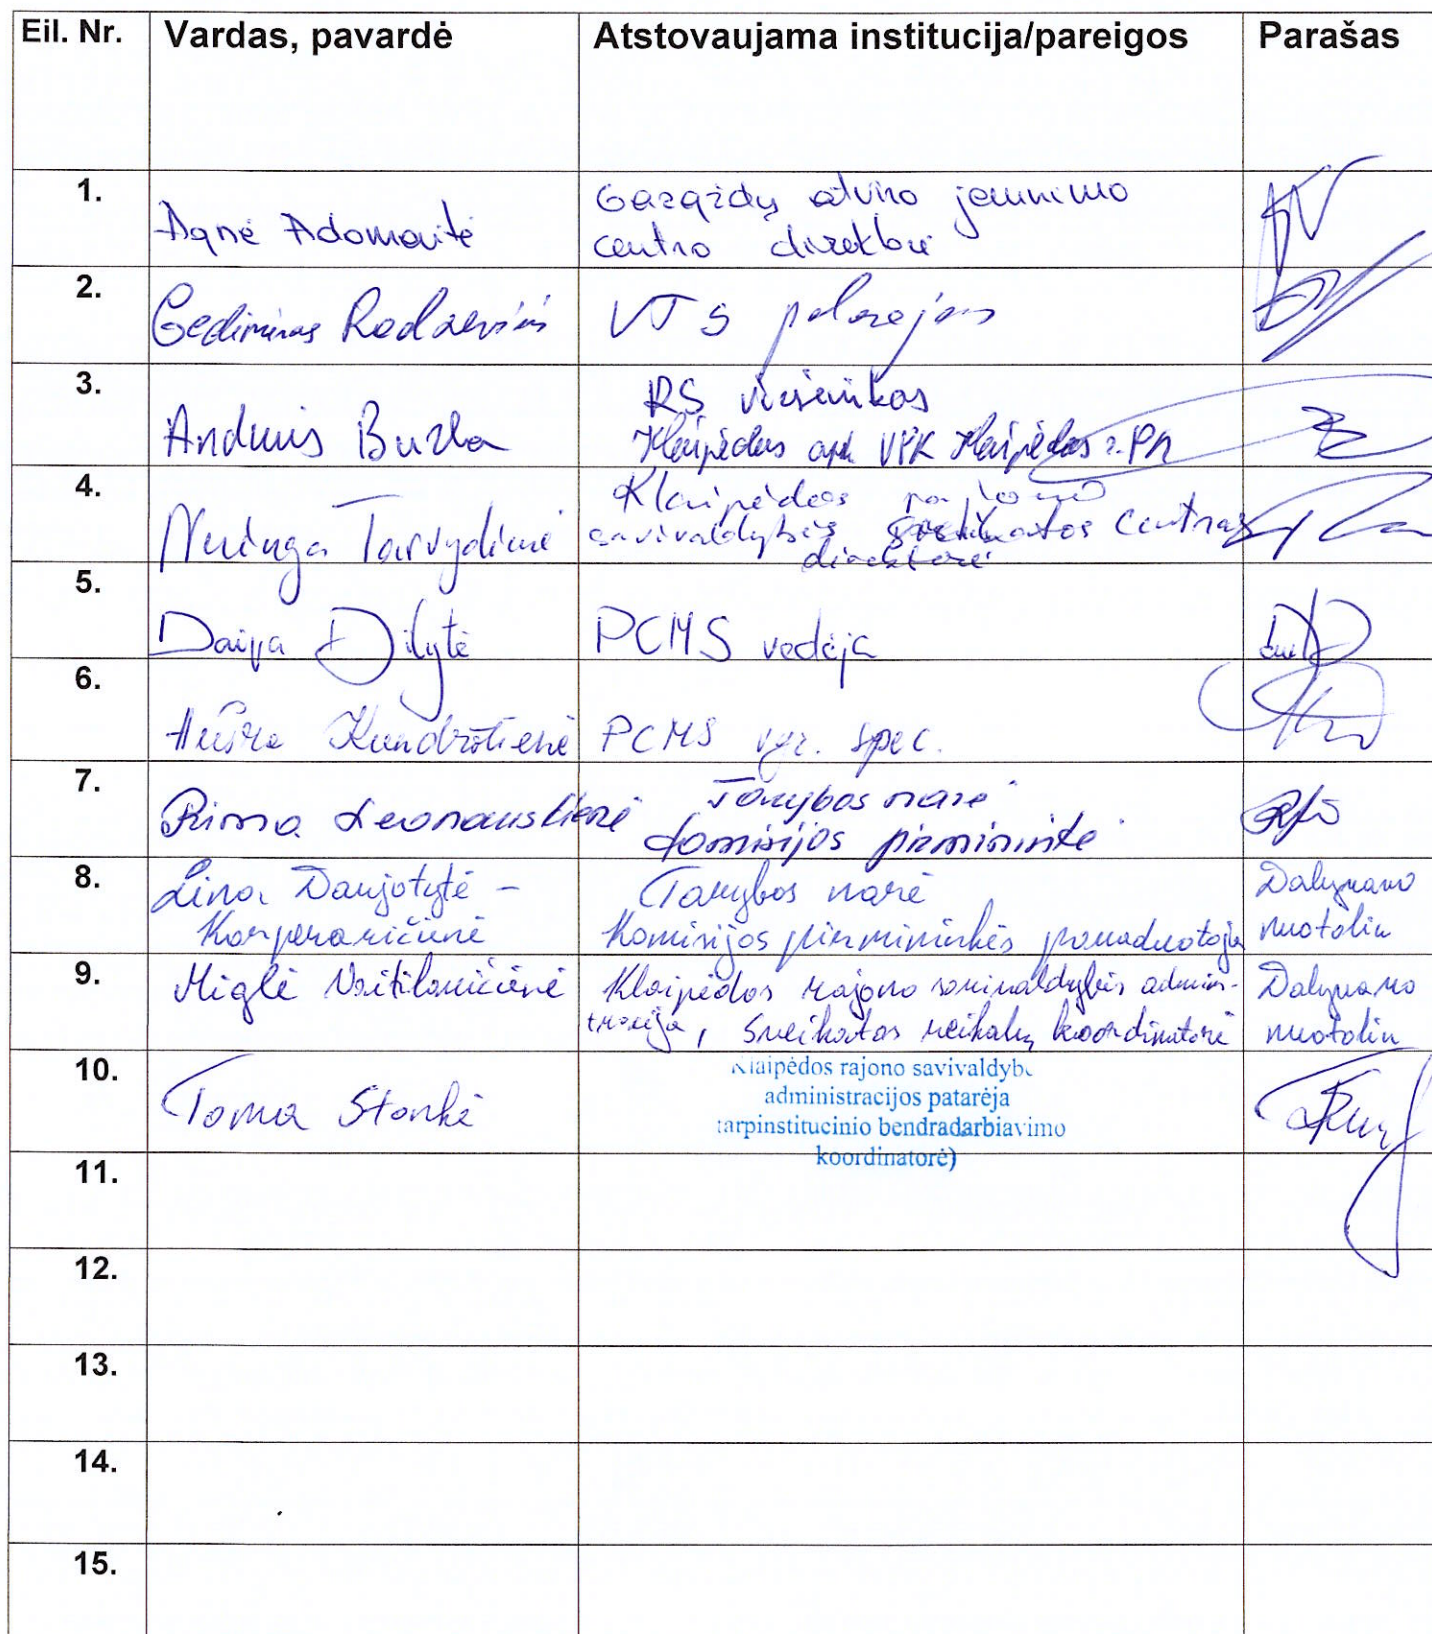 Eil. Nr. Vardas, pavardė Atstovaujama institucija/pareigos Parašas
1. Agnė Adomaitė Gargždų atviro jaunimo
centro direktorė
2. Gediminas VTS patarėjas
3. Andrius Buzla RS viršininkas
Klaipėdos aps. VPK Klaipėdos r. PK
4. Neringa Tarvydienė Klaipėdos rajono
savivaldybės sveikatos centras
direktorė
5. Daiva Dilytė PCMS vedėja
6. Aušra Kundrotienė PCMS vyr. spec.
7. Rima Leonauskienė Tarybos narė
komisijos pirmininkė
8. Lina Daujotytė - Tarybos narė Dalyvavo
Komisijos pirmininkės pavaduotoja nuotoliu
9. Miglė Klaipėdos rajono savivaldybės adminis- Dalyvavo
tracija, sveikatos reikalų koordinatorė nuotoliu
10. Toma Stonkė Klaipėdos rajono savivaldyb
administracijos patarėja
tarpinstitucinio bendradarbiavimo
koordinatorė)
11.
12.
13.
14.
15.